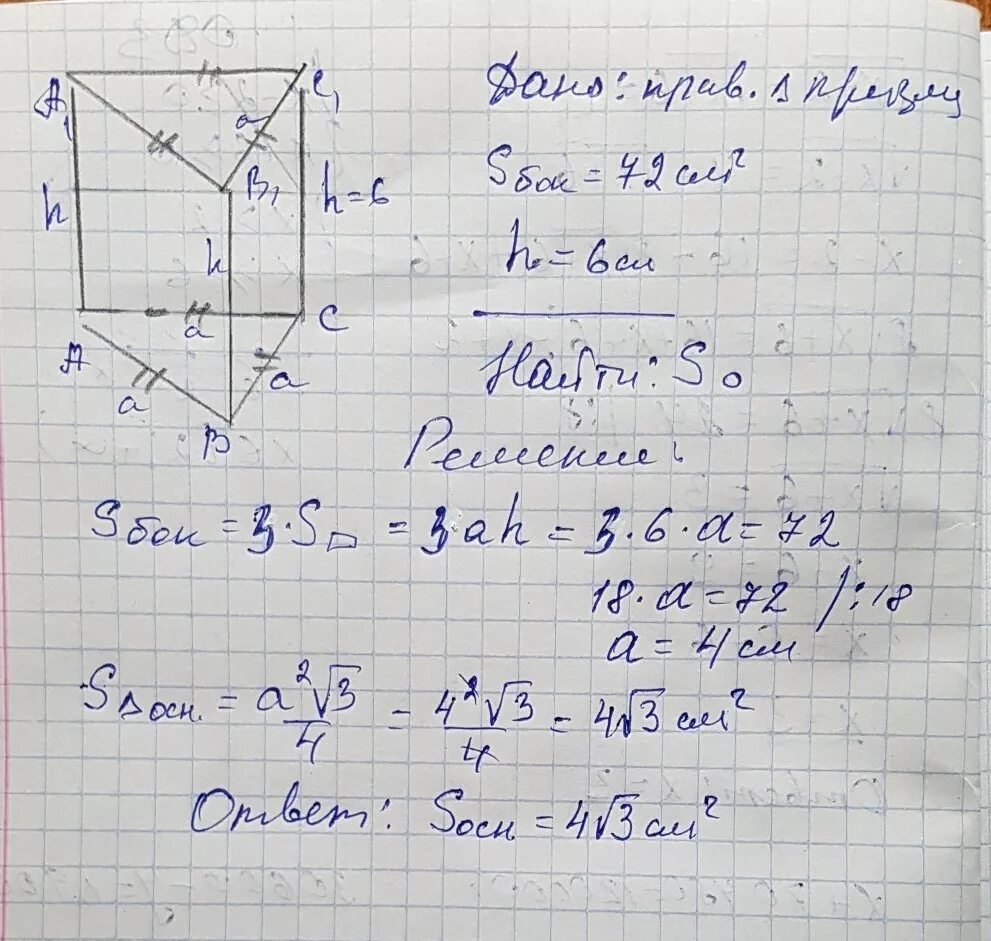 A₁
C₁
a
B₁
h
h = 6
h
a
C
A
a
a
B
Дано: прав. Δ призма
Sбок = 72 см²
h = 6 см
Найти: S₀
Решение:
Sбок = 3·S▭ = 3ah = 3·6·a = 72
18·a = 72 /:18
a = 4 см
SΔосн. = a²√3/4 = 4²√3/4 = 4√3 см²
Ответ: Sосн = 4√3 см²